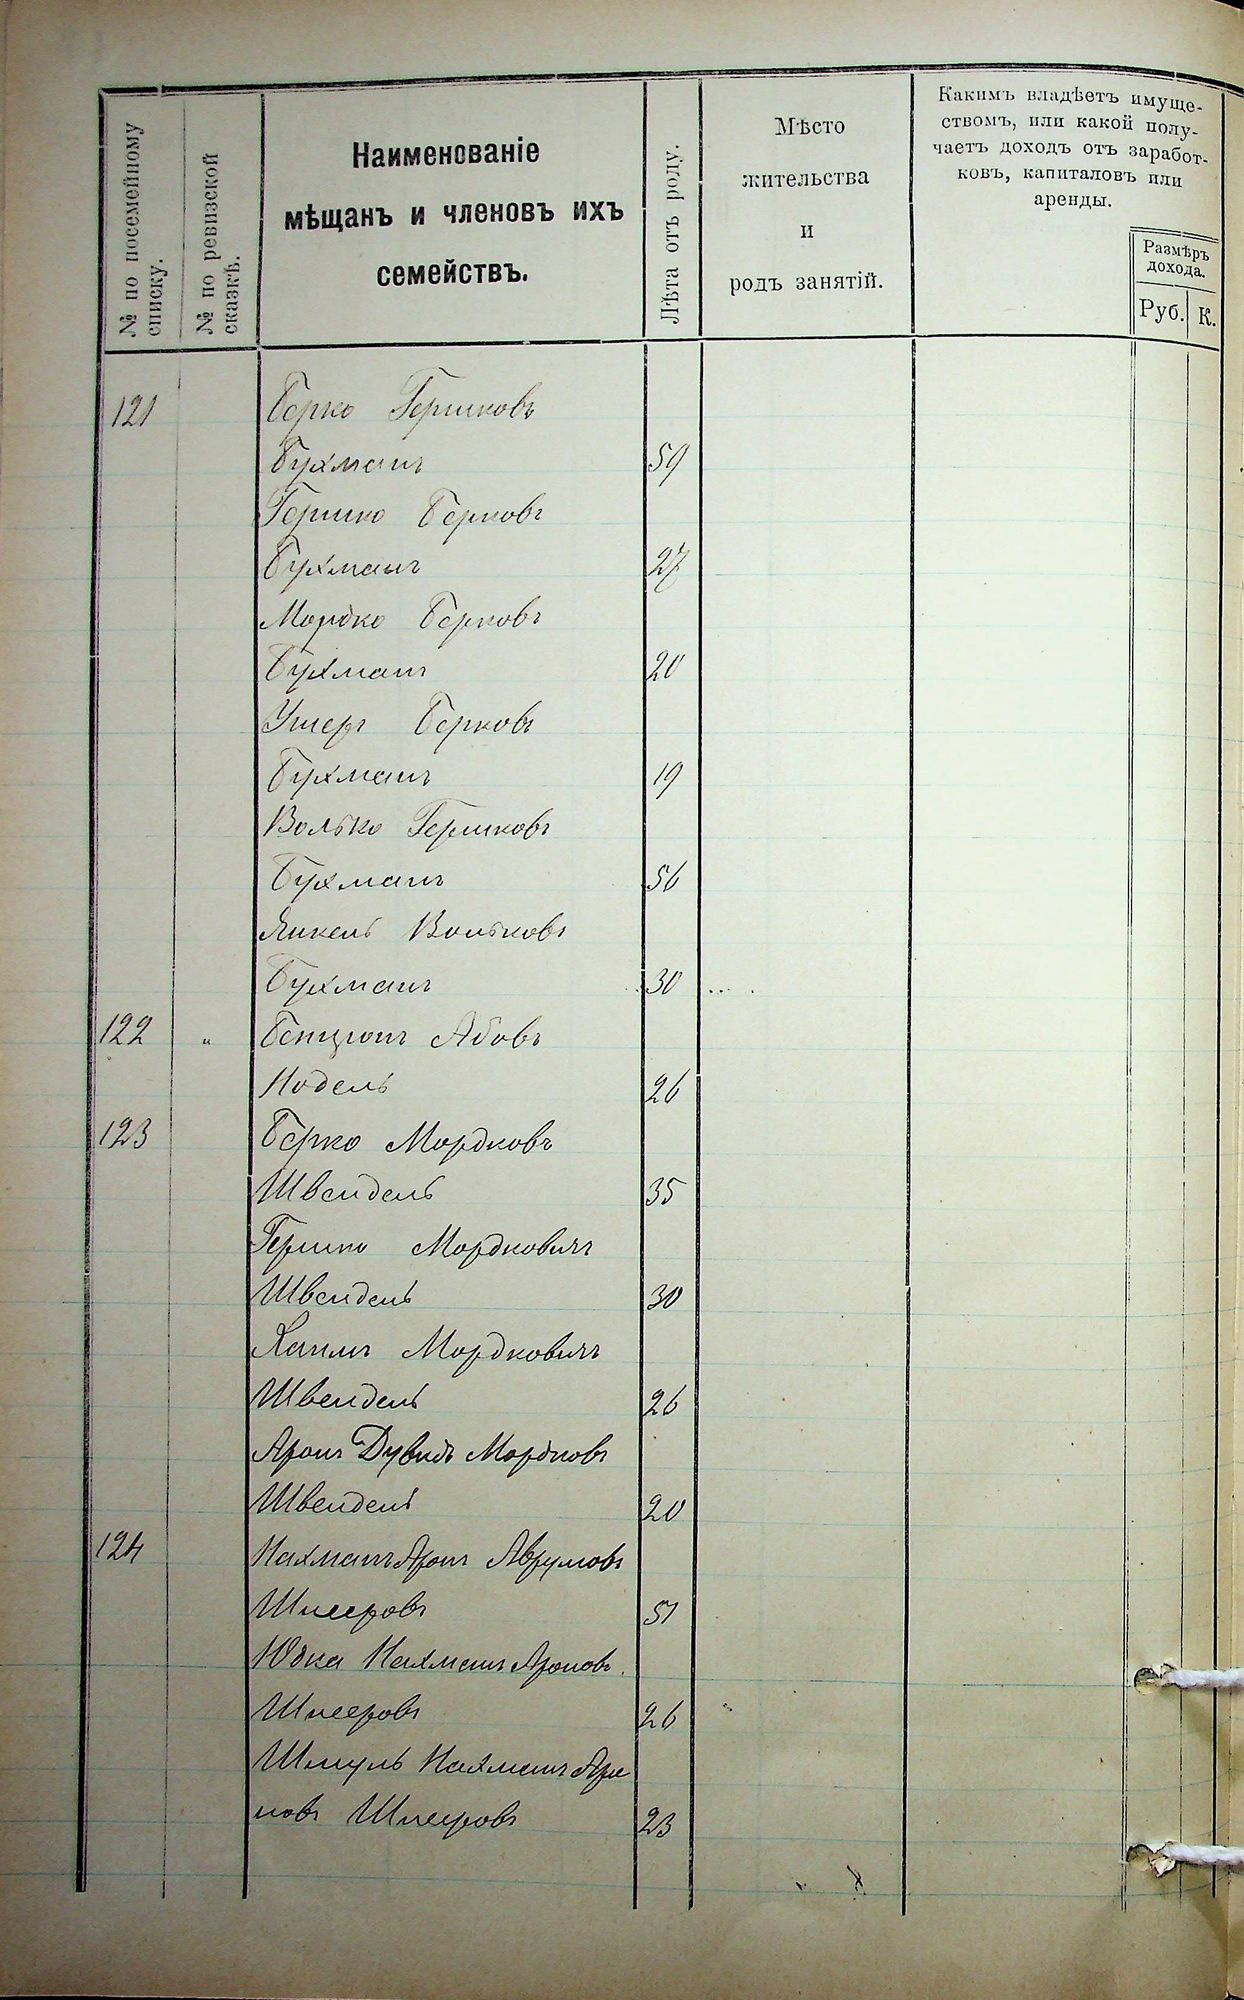 № по посемейному
списку.
№ по ревизской
сказкѣ.
Наименованіе
мѣщанъ и членовъ ихъ
семействъ.
Лѣта отъ роду.
Мѣсто
жительства
и
родъ занятій.
Какимъ владѣетъ имуще-
ствомъ, или какой полу-
чаетъ доходъ отъ заработ-
ковъ, капиталовъ или
аренды.
Размѣръ
дохода.
Руб. К.
121 Берко Гершковъ
Бухманъ 59
Гершко Берковъ
Бухманъ 27
Мордко Берковъ
Бухманъ 20
Ушеръ Берковъ
Бухманъ 19
Волько Гершковъ
Бухманъ 56
Янкель Вольковъ
Бухманъ 30
122 " Бенционъ Абовъ
Нодель 26
123 Берко Мордковъ
Швендель 35
Гершко Мордковичъ
Швендель 30
Хаимъ Мордковичъ
Швендель 26
Аронъ Дувидъ Мордковъ
Швендель 20
124 Нахманъ Аронъ Аврумовъ
Шнееровъ 51
Юдка Нахманъ Ароновъ
Шнееровъ 26
Шмуль Нахманъ Аро
новъ Шнееровъ 23